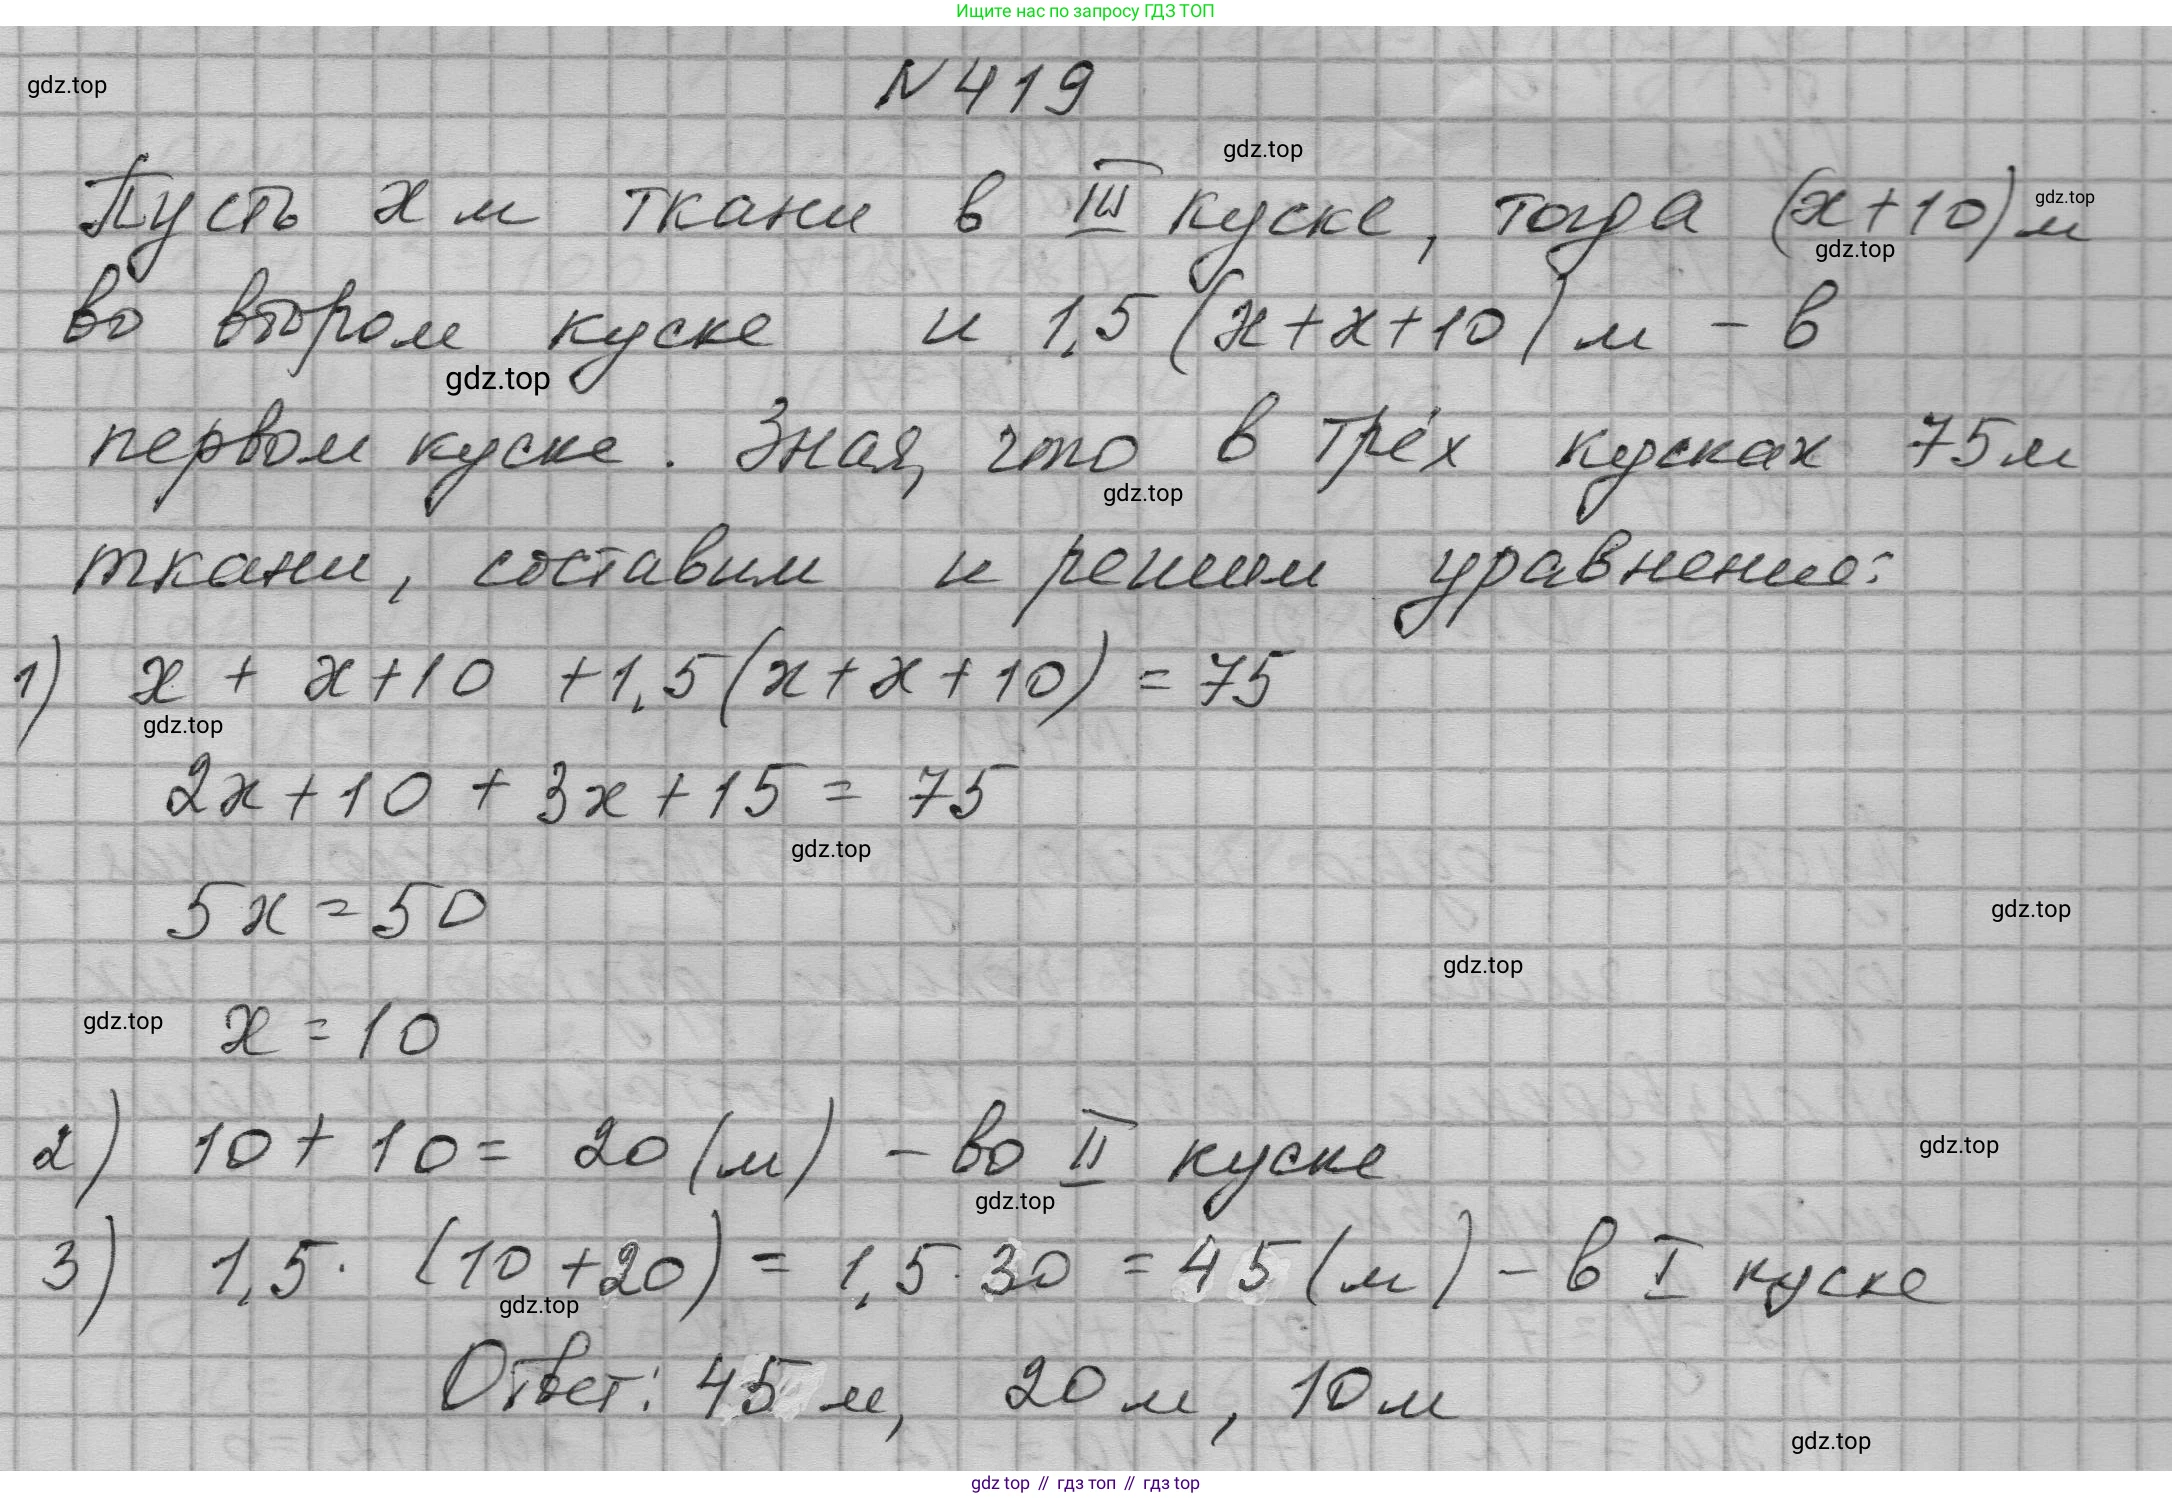 Ищите нас по запросу ГДЗ ТОП
N 419
gdz.top
gdz.top
Пусть x м ткани в III куске, тогда (x+10) м
gdz.top
gdz.top
во втором куске и 1,5 (x+x+10) м – в
gdz.top
первом куске. Зная, что в трёх кусках 75 м
gdz.top
ткани, составим и решим уравнение:
1) x + x+10 +1,5(x+x+10) = 75
gdz.top
2x+10 + 3x+15 = 75
gdz.top
5x = 50
gdz.top
gdz.top
gdz.top
x = 10
2) 10+10= 20 (м) – во II куске
gdz.top
gdz.top
3) 1,5 · (10+20) = 1,5 · 30 = 45 (м) – в I куске
gdz.top
Ответ: 45 м, 20 м, 10 м
gdz.top
gdz top // гдз топ // гдз top